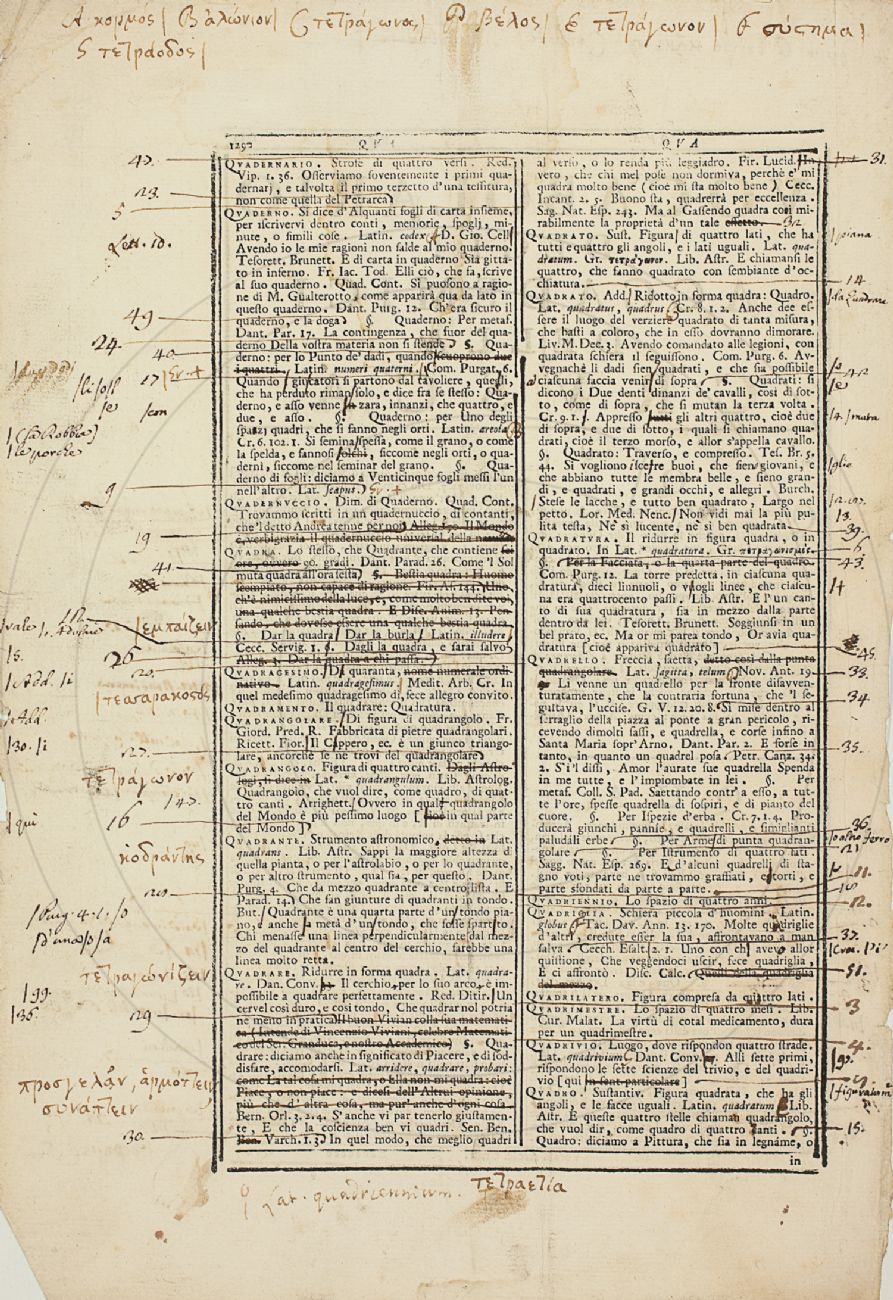 A κορμός| B ἁλώνιον| C τετράγωνος| D βέλος| E τετράγωνον| F σύστημα|
G τετράοδος|
1292 QVA QVA
QVADERNARIO. Strofe di quattro versi. Red.
Vip. 1. 36. Osserviamo soventemente i primi qua-
dernarj, e talvolta il primo terzetto d'una tessitura,
non come quella del Petrarca
QVADERNO. Si dice d'Alquanti fogli di carta insieme,
per iscrivervi dentro conti, memorie, spogli, mi-
nute, o simili cose. Latin. codex. D. Gio. Cell.
Avendo io le mie ragioni non salde al mio quaderno.
Tesorett. Brunett. E di carta in quaderno Sia gitta-
to in inferno. Fr. Iac. Tod. Elli ciò, che fa, scrive
al suo quaderno. Quad. Cont. Si puosono a ragio-
ne di M. Gualterotto, come apparirà qua da lato in
questo quaderno. Dant. Purg. 12. Ch'era sicuro il
quaderno, e la doga §. Quaderno: Per metaf.
Dant. Par. 17. La contingenza, che fuor del qua-
derno Della vostra materia non si stende §. Qua-
derno: per lo Punto de' dadi, quando scuoprono due
i quattri. Latin. numeri quaterni. Com. Purgat. 6.
Quando i giucatori si partono dal tavoliere, quegli,
che ha perduto riman solo, e dice fra se stesso: Qua-
derno, e asso venne zara, innanzi, che quattro, e
due, e asso §. Quaderno: per Uno degli
spazj quadri, che si fanno negli orti. Latin. areola
Cr. 6. 102. 1. Si semina spessa, come il grano, o come
la spelda, e fannosi solchi, siccome negli orti, o qua-
derni, siccome nel seminar del grano. §. Qua-
derno di fogli: diciamo a Venticinque fogli messi l'un
nell'altro. Lat. scapus.
QVADERNVCCIO. Dim. di Quaderno. Quad. Cont.
Trovammo scritti in un quadernuccio, di contanti,
che 'l detto Andrea tenne per noi Alleg. 150. Il Mondo
è, verbigrazia il quadernuccio universal della
QVADRA. Lo stesso, che Quadrante, che contiene
ore, ovvero 90. gradi. Dant. Parad. 26. Come 'l Sol
muta quadra all'ora sesta §. Bestia quadra: Huomo
scempiato, non capace di ragione. Fir. As. 144. Uno,
ch'è nimicissimo della luce, e, come molto ben dite voi,
una qualche bestia quadra. E Disc. Anim. 13. Pen-
sando, che dovesse essere una qualche bestia quadra
§. Dar la quadra Dar la burla Latin. illudere
Cecc. Servig. 1. §. Dagli la quadra, e sarai salvo
Alleg. 3. Dar la quadra a chi passa.
QVADRAGESIMO. Di quaranta, nome numerale ordi-
nativo. Latin. quadragesimus. Medit. Arb. Gr. In
quel medesimo quadragesimo dì, fece allegro convito.
QVADRAMENTO. Il quadrare: Quadratura.
QVADRANGOLARE. Di figura di quadrangolo. Fr.
Giord. Pred. R. Fabbricata di pietre quadrangolari.
Ricett. Fior. Il Cappero, ec. è un giunco triango-
lare, ancorchè se ne trovi del quadrangolare
QVADRANGOLO. Figura di quattro canti. Dagli Astro-
logi si dice in Lat. * quadrangulum. Lib. Astrolog.
Quadrangolo, che vuol dire, come quadro, di quat-
tro canti. Arrighett. Ovvero in qual quadrangolo
del Mondo è più pessimo luogo [cioè in qual parte
del Mondo]
QVADRANTE. Strumento astronomico, detto in Lat.
quadrans. Lib. Astr. Sappi la maggiore altezza di
quella pianta, o per l'astrolabio, o per lo quadrante,
o per altro strumento, qual sia, per questo. Dant.
Purg. 4. Che da mezzo quadrante a centro lista. E
Parad. 14. Che fan giunture di quadranti in tondo.
But. Quadrante è una quarta parte d'un tondo pia-
no, e anche la metà d'un tondo, che fosse spartito.
Chi menasse una linea perpendicularmente dal mez-
zo del quadrante al centro del cerchio, sarebbe una
linea molto retta.
QVADRARE. Ridurre in forma quadra. Lat. quadra-
re. Dan. Conv. Il cerchio, per lo suo arco, è im-
possibile a quadrare perfettamente. Red. Ditir. Un
cervel così duro, e così tondo, Che quadrar nol potria
ne meno in pratica Il buon Vivian colla sua matemati-
ca (Intende di Vincenzio Viviani, celebre Matemati-
co del Ser. Granduca, e nostro Accademico) §. Qua-
drare: diciamo anche in significato di Piacere, e di sod-
disfare, accomodarsi. Lat. arridere, quadrare, probari:
come La tal cosa mi quadra, o Ella non mi quadra: cioè
Piace, o non piace: e dicesi dell'Altrui opinione,
più che d'altra cosa, ma pur' anche d'ogni cosa.
Bern. Orl. 3. 1. 42. S'anche vi par tenerlo giustamen-
te, E che la coscienza ben vi quadri. Sen. Ben.
Varch. 1. 3. In quel modo, che meglio quadri
al verso, o lo renda più leggiadro. Fir. Lucid. In
vero, che chi mel pose non dormiva, perchè e' mi
quadra molto bene (cioè mi sta molto bene) Cecc.
Incant. 2. 5. Buono sta, quadrerrà per eccellenza.
Sag. Nat. Esp. 243. Ma al Gassendo quadra così mi-
rabilmente la proprietà d'un tale effetto.
QVADRATO. Sust. Figura di quattro lati, che ha
tutti e quattro gli angoli, e i lati uguali. Lat. qua-
dratum. Gr. τετράγωνον. Lib. Astr. E chiamansi le
quattro, che fanno quadrato con sembiante d'oc-
chiatura.
QVADRATO. Add. Ridotto in forma quadra: Quadro.
Lat. quadratus, quadrus. Cr. 8. 1. 2. Anche dee es-
sere il luogo del verziere quadrato di tanta misura,
che basti a coloro, che in esso dovranno dimorare.
Liv. M. Dec. 3. Avendo comandato alle legioni, con
quadrata schiera il seguissono. Com. Purg. 6. Av-
vegnachè li dadi sien quadrati, e che sia possibile
a ciascuna faccia venir di sopra §. Quadrati: si
dicono i Due denti dinanzi de' cavalli, così di sot-
to, come di sopra, che si mutan la terza volta.
Cr. 9. 1. Appresso gli altri quattro, cioè due
di sopra, e due di sotto, i quali si chiamano qua-
drati, cioè il terzo morso, e allor s'appella cavallo.
§. Quadrato: Traverso, e compresso. Tes. Br. 5.
44. Si vogliono scerre buoi, che sien giovani, e
che abbiano tutte le membra belle, e sieno gran-
di, e quadrati, e grandi occhi, e allegri. Burch.
Stese le lacche, e tutto ben quadrato, Largo nel
petto. Lor. Med. Nenc. Non vidi mai la più pu-
lita testa, Nè sì lucente, nè sì ben quadrata
QVADRATVRA. Il ridurre in figura quadra, o in
quadrato. In Lat. * quadratura. Gr. τετραγωνισμός.
§. Per la Facciata, o la quarta parte del quadro.
Com. Purg. 12. La torre predetta, in ciascuna qua-
dratura, dieci linnuoli, o vuogli linee, che ciascu-
na era quattrocento passi. Lib. Astr. E l'un can-
to di sua quadratura, sia in mezzo dalla parte
dentro da lei. Tesorett. Brunett. Soggiunsi in un
bel prato, ec. Ma or mi parea tondo, Or avia qua-
dratura [cioè appariva quadrato]
QVADRELLO. Freccia, saetta, detto così dalla punta
quadrangolare. Lat. sagitta, telum. Nov. Ant. 19.
Li venne un quadrello per la fronte disavven-
turatamente, che la contraria fortuna, che 'l se-
guitava, l'uccise. G. V. 12. 20. 8. Si mise dentro al
serraglio della piazza al ponte a gran pericolo, ri-
cevendo dimolti sassi, e quadrella, e corse infino a
Santa Maria sopr' Arno. Dant. Par. 2. E forse in
tanto, in quanto un quadrel posa. Petr. Canz. 34.
2. S'i'l dissi, Amor l'aurate sue quadrella Spenda
in me tutte, e l'impiombate in lei. §. Per
metaf. Coll. S. Pad. Saettando contr' a esso, a tut-
te l'ore, spesse quadrella di sospiri, e di pianto del
cuore. §. Per Ispezie d'erba. Cr. 7. 1. 4. Pro-
ducerà giunchi, pannie, e quadrelli, e simiglianti
paludali erbe §. Per Arme di punta quadran-
golare §. Per Istrumento di quattro lati.
Sagg. Nat. Esp. 269. E d'alcuni quadrelli di sta-
gno voti, parte ne trovammo graffiati, e torti, e
parte sfondati da parte a parte.
QVADRIENNIO. Lo spazio di quattro anni.
QVADRIGLIA. Schiera piccola d'huomini. Latin.
globus. Tac. Dav. Ann. 13. 170. Molte quadriglie
d'altri, credute esser la sua, affrontavano a man
salva Cecch. Esalt. 2. 1. Uno con chi avevo allor
quistione, Che veggendoci uscir, fece quadriglia,
E ci affrontò. Disc. Calc. Quelli della quadriglia
del mezzo.
QVADRILATERO. Figura compresa da quattro lati.
QVADRIMESTRE. Lo spazio di quattro mesi. Lib.
Cur. Malat. La virtù di cotal medicamento, dura
per un quadrimestre.
QVADRIVIO. Luogo, dove rispondon quattro strade.
Lat. quadrivium. Dant. Conv. Alli sette primi,
rispondono le sette scienze del trivio, e del quadri-
vio [qui in sent. particolare]
QVADRO. Sustantiv. Figura quadrata, che ha gli
angoli, e le facce uguali. Latin. quadratum. Lib.
Astr. E queste quattro stelle chiaman quadrangolo,
che vuol dir, come quadro di quattro canti. §.
Quadro: diciamo a Pittura, che sia in legname, o
in
47.
23.
5
Lett. 10.
49
24
40
27
9
19
41.
ἐμπαίζειν
26
20.
τεσσαρακοστός
22.
τετράγωνον
147.
16
κοδράντης
20
τετραγωνίζειν
199.
29
προσγελᾶν, ἁρμόττειν
συνάπτειν
30.
31.
32
piana
14
42
39.
6
43.
45.
33.
34
35.
36.
21
11.
10
12.
37.
51.
3
4.
9
15.
Lat. quadriennium. τετραετία